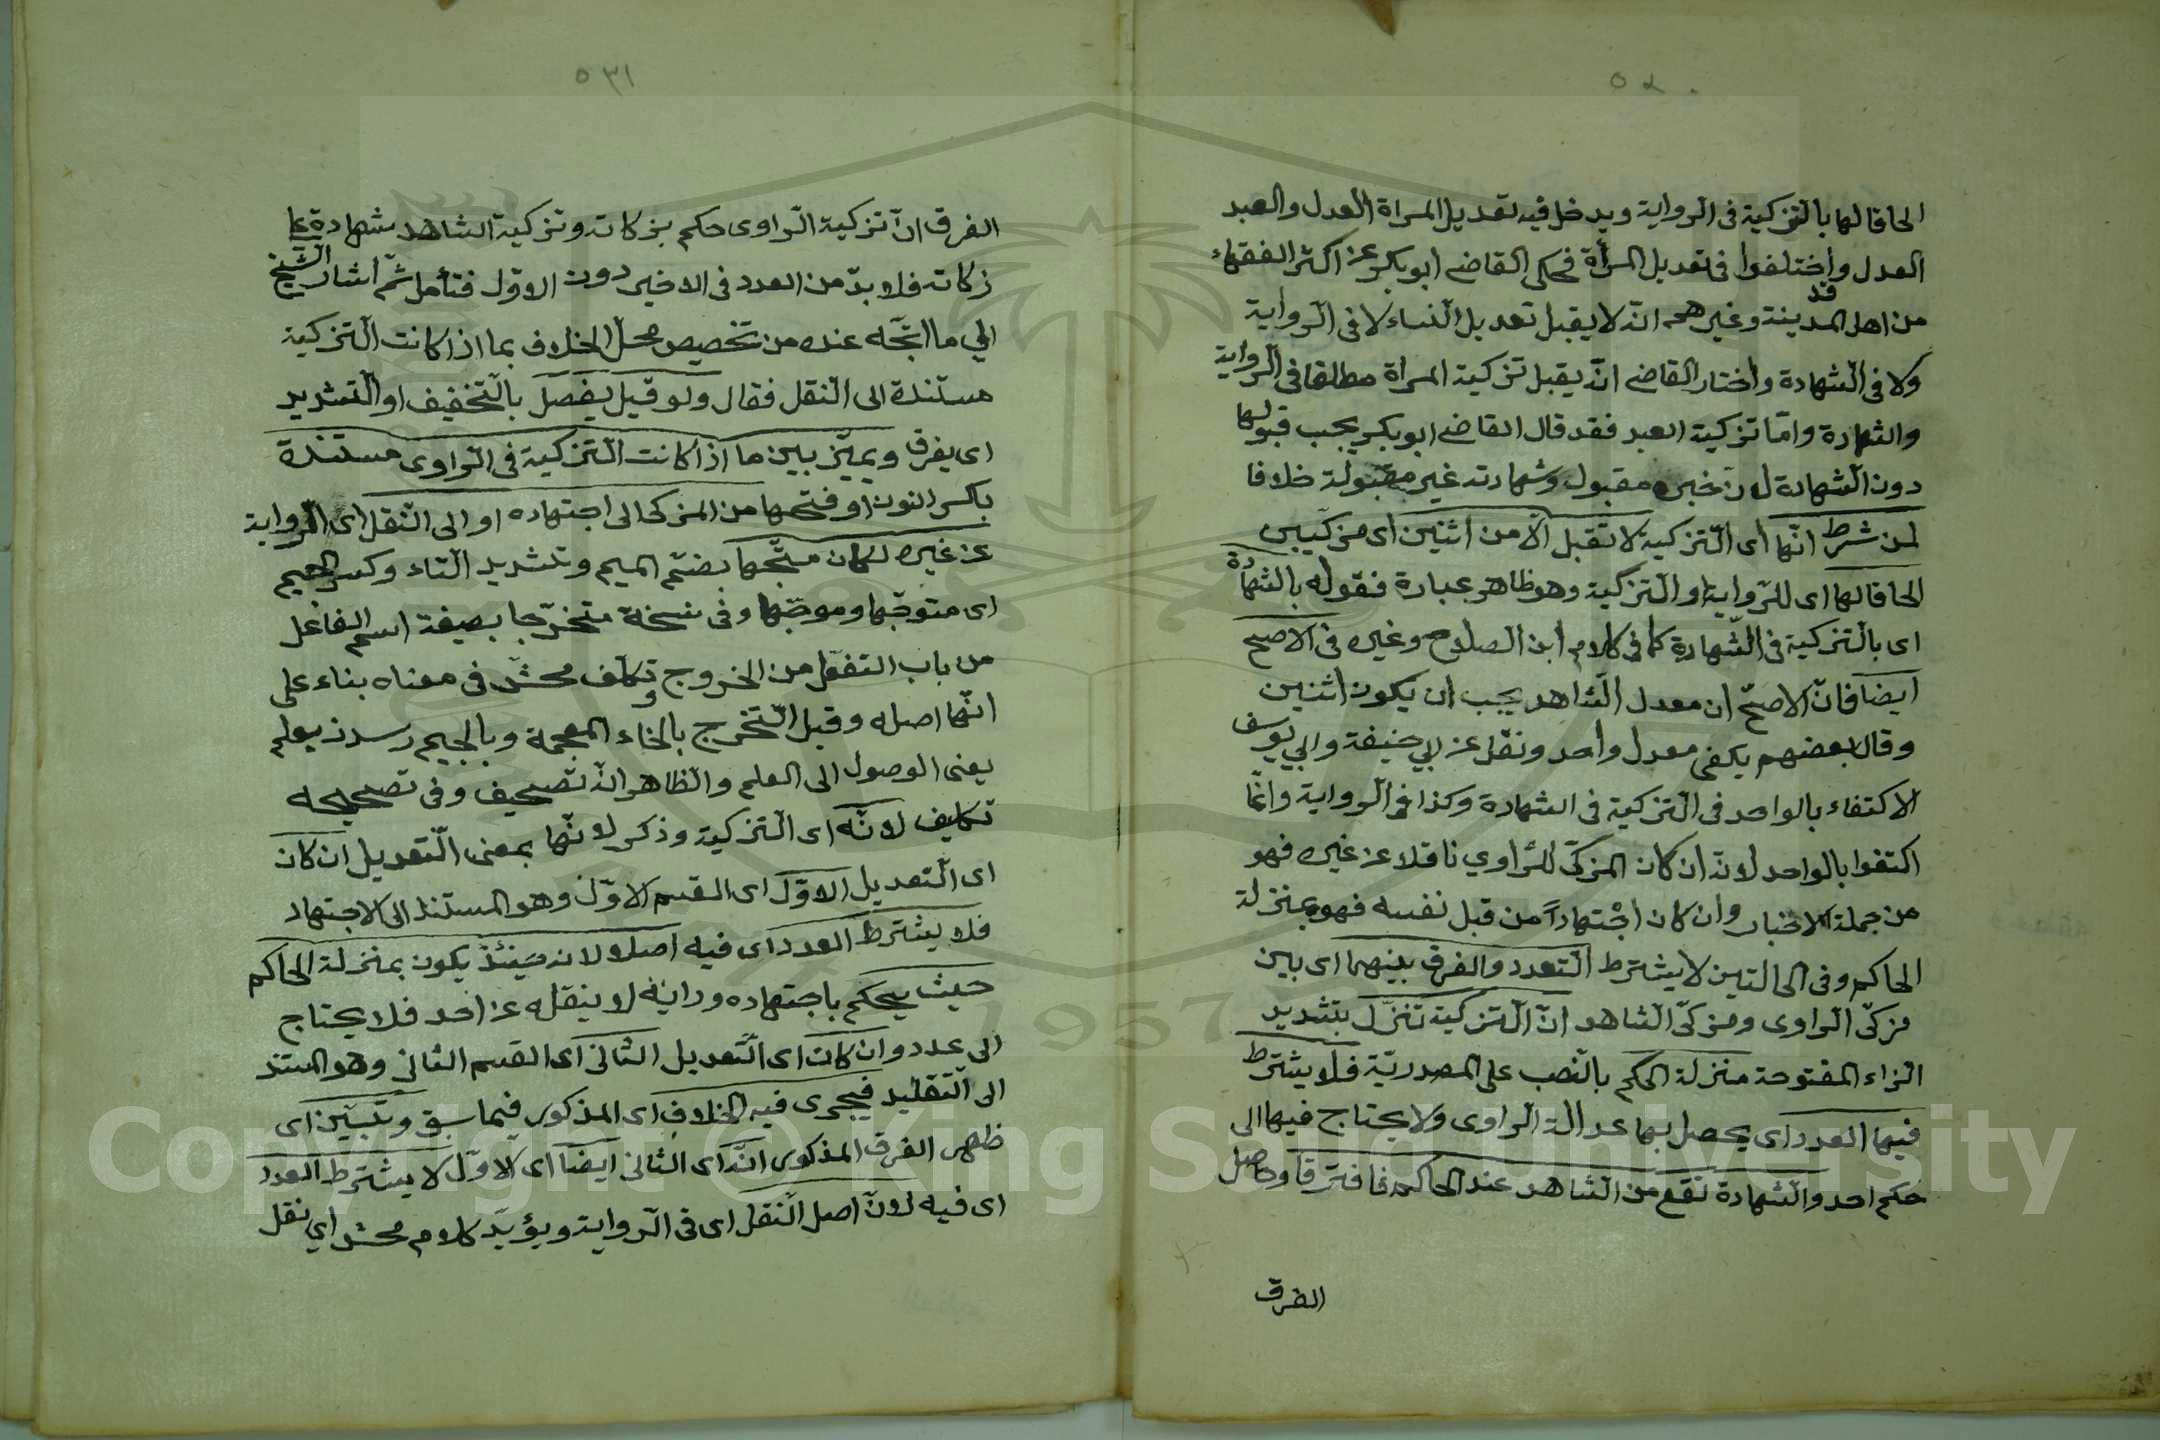 ٥٢٠
الحاقا لها بالتزكية فى الرواية ويدخل فيه تعديل المراة العدل والعبد
العدل واختلفوا فى تعديل المرأة فحكى القاضى ابو بكر عن اكثر الفقهاء
من اهل المدينة وغيرهم انه لا يقبل تعديل النساء لا فى الرواية
ولا فى الشهادة واختار القاضى انه يقبل تزكية المراة مطلقا فى الرواية
والشهادة واما تزكية العبد فقد قال القاضى ابو بكر يجب قبولها
دون الشهادة لان خبره مقبول وشهادته غير مقبولة خلافا
لمن شرط انها اى التزكية لا تقبل الا من اثنين اى مزكيين
الحاقا لها اى للرواية او التزكية وهو ظاهر عبارة فقوله بالشهادة
اى بالتزكية فى الشهادة كما فى كلام ابن الصلاح وغيره فى الاصح
ايضا فان الاصح ان معدل الشاهد يجب ان يكون اثنين
وقال بعضهم يكفى معدل واحد ونقل عن ابي حنيفة وابي يوسف
الاكتفاء بالواحد فى التزكية فى الشهادة وكذا فى الرواية وانما
اكتفوا بالواحد لانه ان كان المزكى للراوي ناقلا عن غيره فهو
من جملة الاخبار وان كان اجتهاداً من قبل نفسه فهو بمنزلة
الحاكم وفى الحالتين لا يشترط التعدد والفرق بينهما اى بين
مزكى الراوى ومزكى الشاهد ان التزكية تنزل بتشديد
الزاء المفتوحة منزلة الحكم بالنصب على المصدرية فلا يشترط
فيها العدد اى يحصل بها عدالة الراوى ولا يحتاج فيها الى
حكم احد والشهادة تقع من الشاهد عند الحاكم فافترقا وحاصل
الفرق
٥٢١
الفرق ان تزكية الراوى حكم بزكاته وتزكية الشاهد شهادة على
زكاته فلا بد من العدد فى الاخير دون الاول فتأمل ثم اشار الشيخ
الي ما اتجه عنده من تخصيص محل الخلاف بما اذا كانت التزكية
مستندة الى النقل فقال ولو قيل يفصل بالتخفيف او التشديد
اى يفرق ويميز بين ما اذا كانت التزكية فى الراوى مستندة
بكسر النون او فتحها من المزكى الى اجتهاده او الى النقل اى الرواية
عن غيره لكان متجها بضم الميم وتشديد التاء وكسر الجيم
اى متوجها وموجها وفى نسخة متخرجا بصيغة اسم الفاعل
من باب التفعل من الخروج وتكلف محش فى معناه بناء على
انها اصله وقيل التخرج بالخاء المعجمة وبالجيم رسدن بعلم
يعنى الوصول الى العلم والظاهر انه تصحيف وفى تصحيحه
تكليف لانه اى التزكية وذكر لانها بمعنى التعديل ان كان
اى التعديل الاول اى القسم الاول وهو المستند الى الاجتهاد
فلا يشترط العدد اى فيه اصلا لانه حينئذ يكون بمنزلة الحاكم
حيث يحكم باجتهاده ورايه لا ينقله عن احد فلا يحتاج
الى عدد وان كان اى التعديل الثانى اى القسم الثانى وهو المستند
الى التقليد فيجرى فيه الخلاف اى المذكور فيما سبق وتبين اى
ظهر الفرق المذكور انه اى الثانى ايضا اى كالاول لا يشترط العدد
اى فيه لان اصل النقل اى فى الرواية ويؤيد كلام محش اي نقل